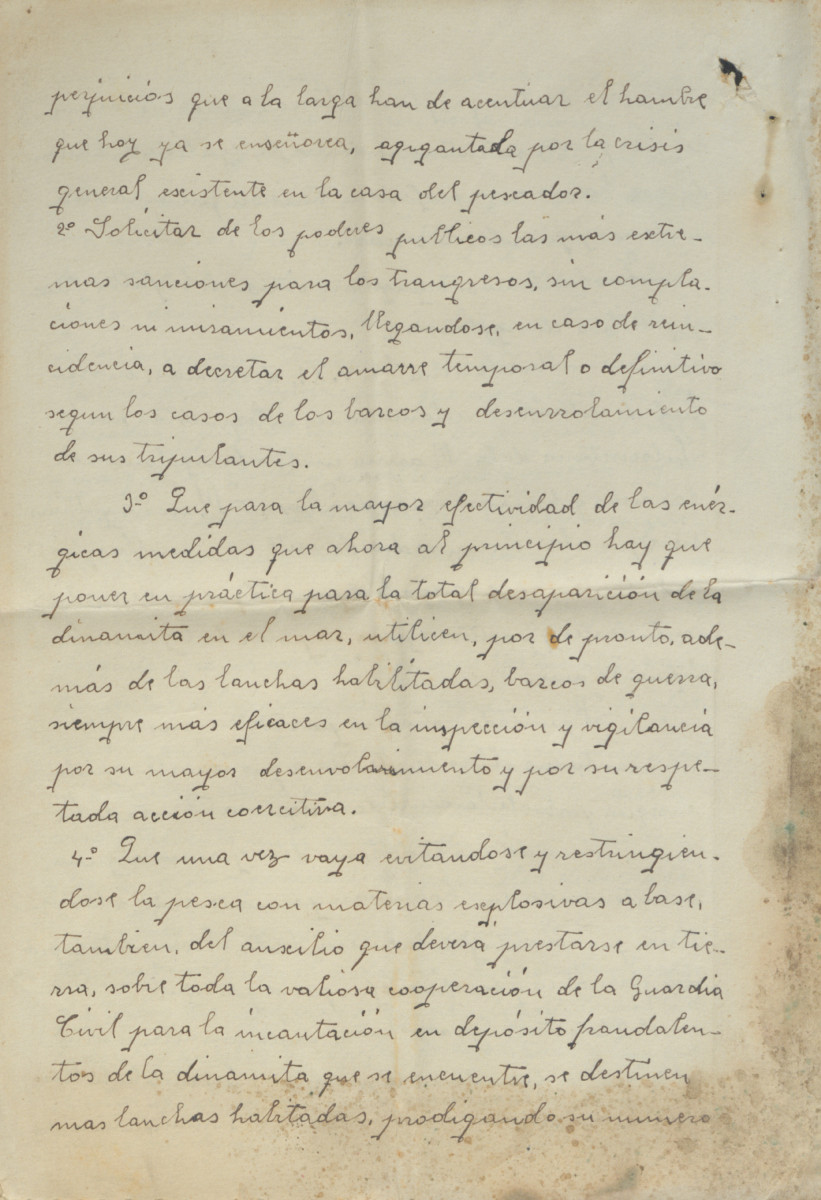 perjuicios que a la larga han de acentuar el hambre
que hoy ya se enseñorea, agigantada por la crisis
general escistente en la casa del pescador.
2º Solícitar de los poderes publicos las más extre-
mas sanciones para los trangresos, sin compla-
ciones ni miramientos, llegandose, en caso de rein-
cidencia, a decretar el amarre temporal o definitivo
segun los casos de los barcos y desenrrolamiento
de sus tripulantes.
3º Que para la mayor efectividad de las enér-
gicas medidas que ahora al principio hay que
poner en práctica para la total desaparición de la
dinamita en el mar, utilicen, por de pronto, ade-
más de las lanchas habilitadas, barcos de guerra,
siempre más eficaces en la inspección y vigilancia
por su mayor y por su respe-
tada acción coercitiva.
4º Que una vez vaya evitandose y restringien-
dose la pesca con materias esplosivas a base,
tambien, del auxilio que deverá prestarse en tie-
rra, sobre toda la valiosa cooperación de la Guardia
Civil para la incautación en depósito fraudalen-
tos de la dinamita que se encuentre, se destinen
mas lanchas habitadas, prodigando su numero